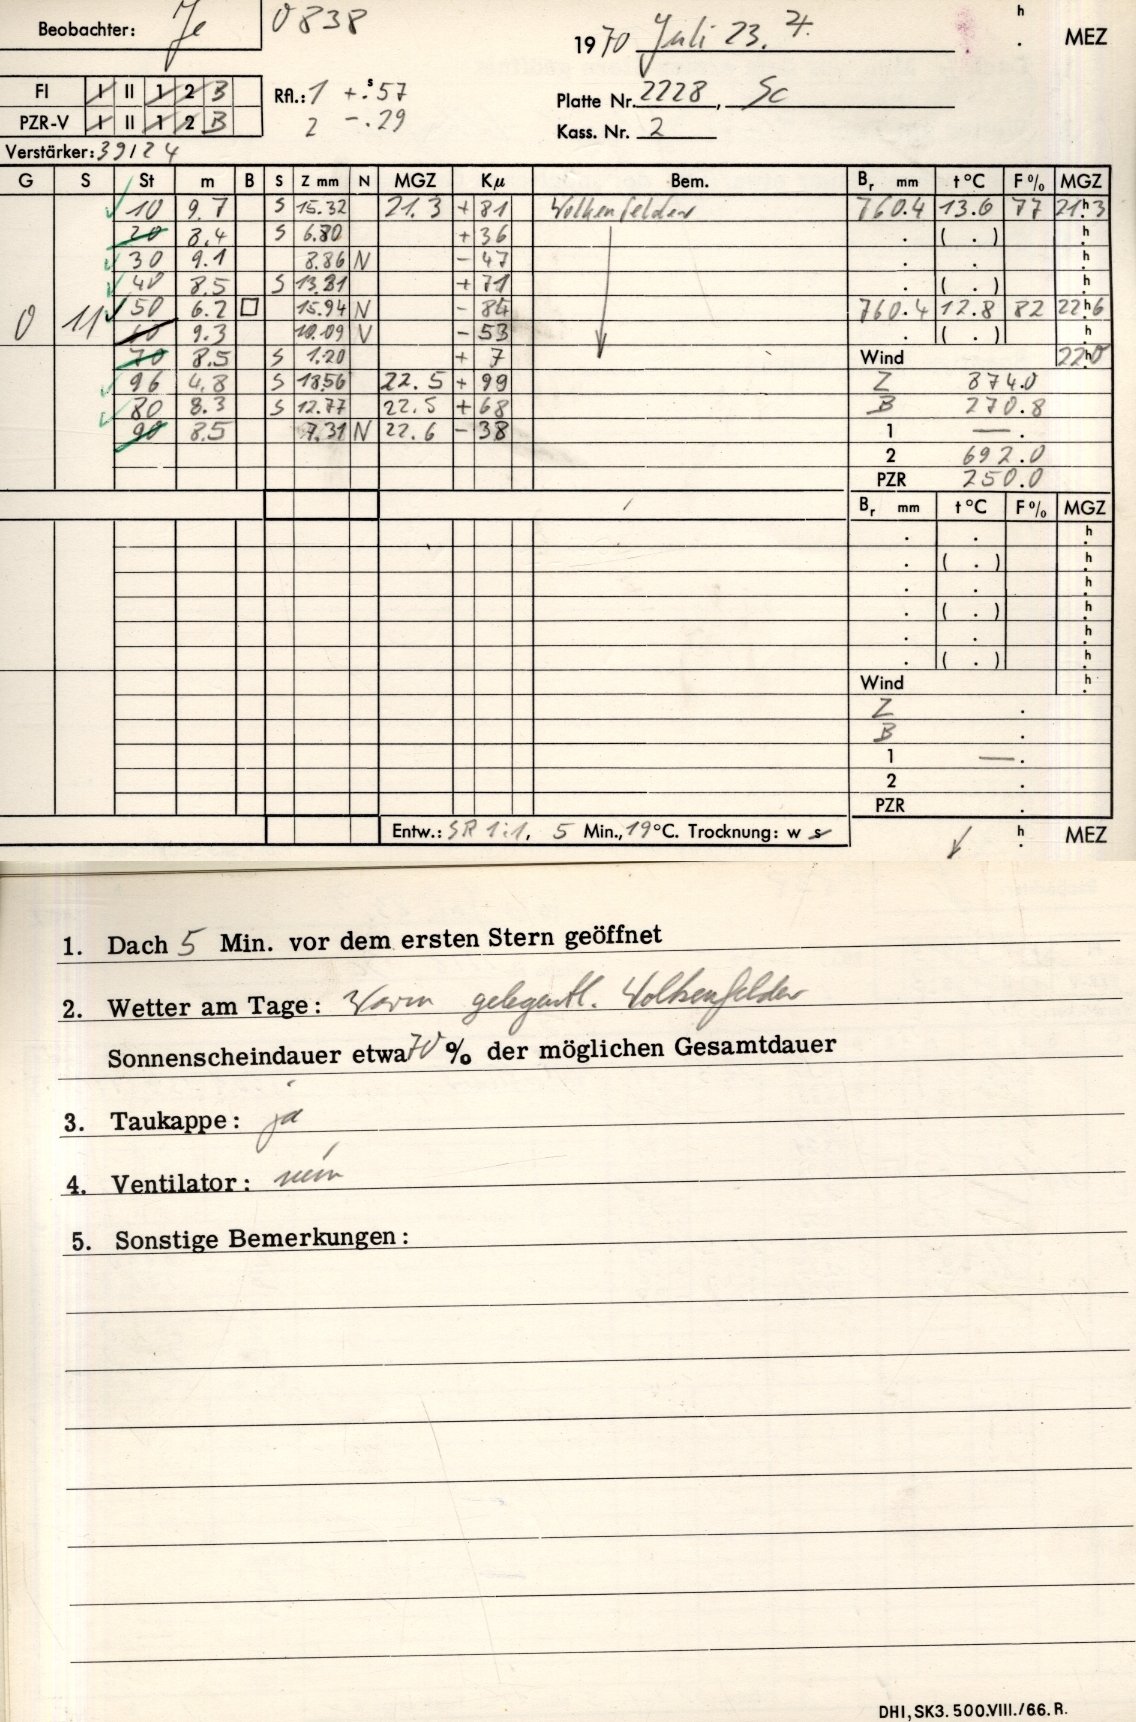 Beobachter: Je 0838
1970 Juli 23.4. h . MEZ
FI I II 1 2 B
PZR-V I II 1 2 B
Rfl.: 1 +.s57
2 -.29
Platte Nr. 2228, Sc
Kass. Nr. 2
Verstärker: 39/24
G S St m B S Z mm N MGZ Kμ Bem. Br mm t°C F% MGZ
10 9.7 S 15.32 21.3 +81 Wolkenfelder 760.4 13.6 77 21h.3
20 8.4 S 6.80 +36 . ( . ) h
30 9.1 8.86 N -47 . . h
40 8.5 S 13.81 +71 . ( . ) h
0 11 50 6.2 □ 15.94 N -84 760.4 12.8 82 22h6
60 9.3 10.09 N -53 . ( . ) h
70 8.5 S 1.20 +7 Wind 22h0
96 4.8 S 18.56 22.5 +99 Z 874.0
80 8.3 S 12.77 22.5 +68 B 270.8
90 8.5 7.31 N 22.6 -38 1 — .
2 692.0
PZR 250.0
Br mm t°C F% MGZ
. . h
. ( . ) h
. . h
. ( . ) h
. . h
. ( . ) h
Wind h
Z .
B .
1 — .
2 .
PZR .
Entw.: SR 1:1, 5 Min., 19°C. Trocknung: w s h . MEZ
1. Dach 5 Min. vor dem ersten Stern geöffnet
2. Wetter am Tage: Warm gelegentl. Wolkenfelder
Sonnenscheindauer etwa 70 % der möglichen Gesamtdauer
3. Taukappe: ja
4. Ventilator: nein
5. Sonstige Bemerkungen:
DHI, SK3. 500.VIII./66. R.